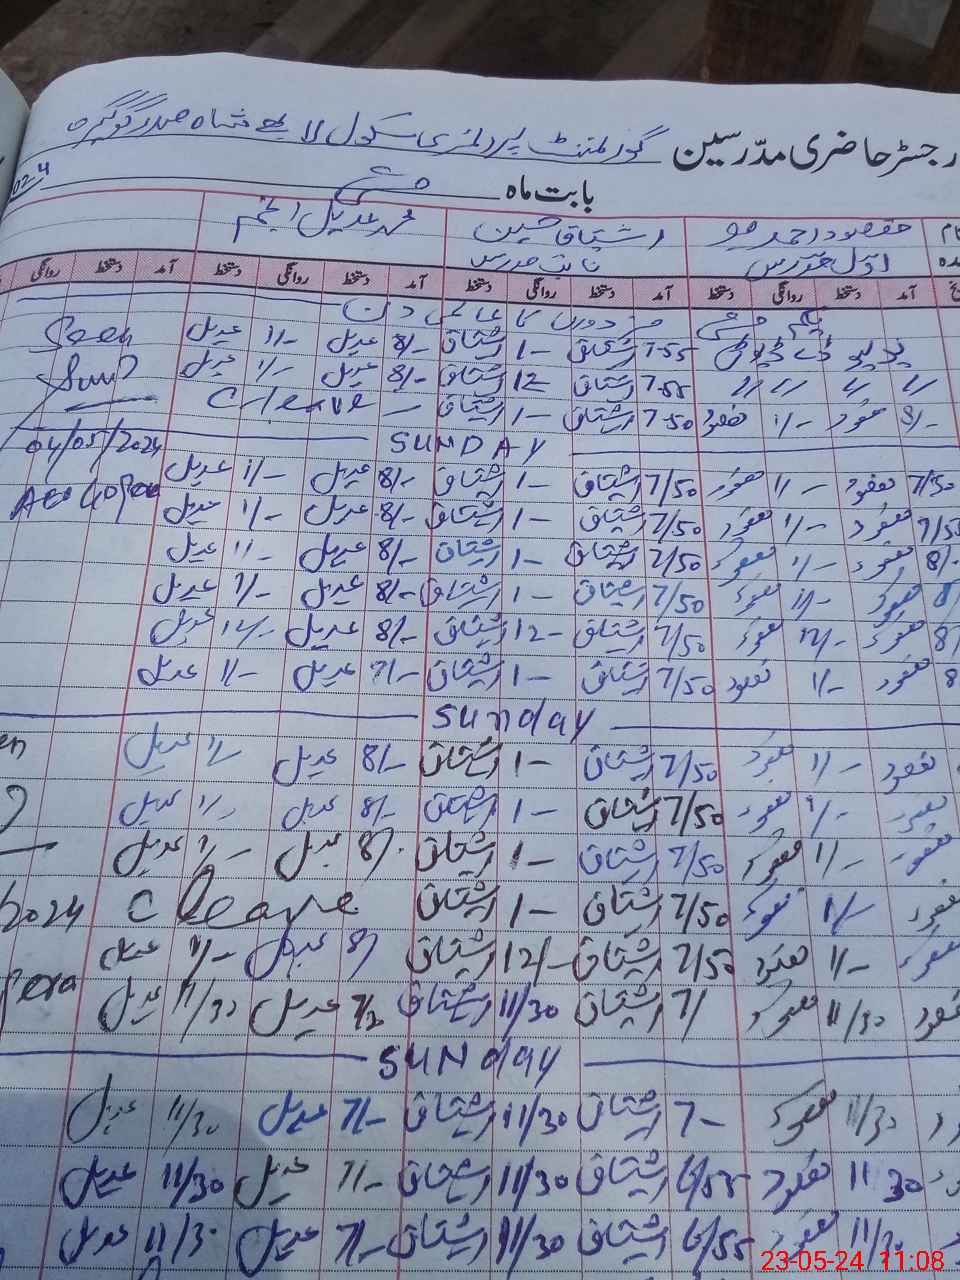 رجسٹر حاضری مدرسین گورنمنٹ پرائمری سکول
بابت ماہ مئی
2024
مقصود احمد اشتیاق حسین محمد عدیل انجم
اول مدرس نائب مدرس
آمد دستخط روانگی دستخط آمد دستخط روانگی دستخط آمد دستخط روانگی دستخط
یکم مئی مزدوروں کا عالمی دن
7-55 اشتیاق 1- اشتیاق 8/- عدیل 1/- عدیل Seen
7-55 اشتیاق 12 اشتیاق 8/- عدیل 1/- عدیل
8/- مقصود 1/- مقصود 7-50 اشتیاق 1- اشتیاق — C leave
SUNDAY 04/05/2024
7/50 مقصود 1/- مقصود 7/50 اشتیاق 1- اشتیاق 8/- عدیل 1/- عدیل
7/50 مقصود 1/- مقصود 7/50 اشتیاق 1- اشتیاق 8/- عدیل 1/- عدیل
8/- مقصود 1/- مقصود 7/50 اشتیاق 1- اشتیاق 8/- عدیل 1/- عدیل
8/ مقصود 1/- مقصود 7/50 اشتیاق 1- اشتیاق 8/- عدیل 1/- عدیل
8/ مقصود 12/- مقصود 7/50 اشتیاق 12- اشتیاق 8/- عدیل 12/- عدیل
8 مقصود 1/- مقصود 7/50 اشتیاق 1- اشتیاق 7/- عدیل 1/- عدیل
Sunday
مقصود 1/- مقصود 7/50 اشتیاق 1- اشتیاق 8/- عدیل 1/- عدیل
مقصود 1/- مقصود 7/50 اشتیاق 1- اشتیاق 8/- عدیل 1/- عدیل
مقصود 1/- مقصود 7/50 اشتیاق 1- اشتیاق 8/- عدیل 1/- عدیل
مقصود 1/- مقصود 7/50 اشتیاق 1- اشتیاق C leave 2024
مقصود 1/- مقصود 7/50 اشتیاق 12/- اشتیاق 8/ عدیل 1/- عدیل
مقصود 11/30 مقصود 7/ اشتیاق 11/30 اشتیاق عدیل 11/30 عدیل
SUNday
11/30 مقصود 7- اشتیاق 11/30 اشتیاق 7/- عدیل 11/30 عدیل
11 30 مقصود 6/55 اشتیاق 11/30 اشتیاق 7/- عدیل 11/30 عدیل
11/30 مقصود 6/55 اشتیاق 11/30 اشتیاق 7/- عدیل 11/30 عدیل
23-05-24 11:08